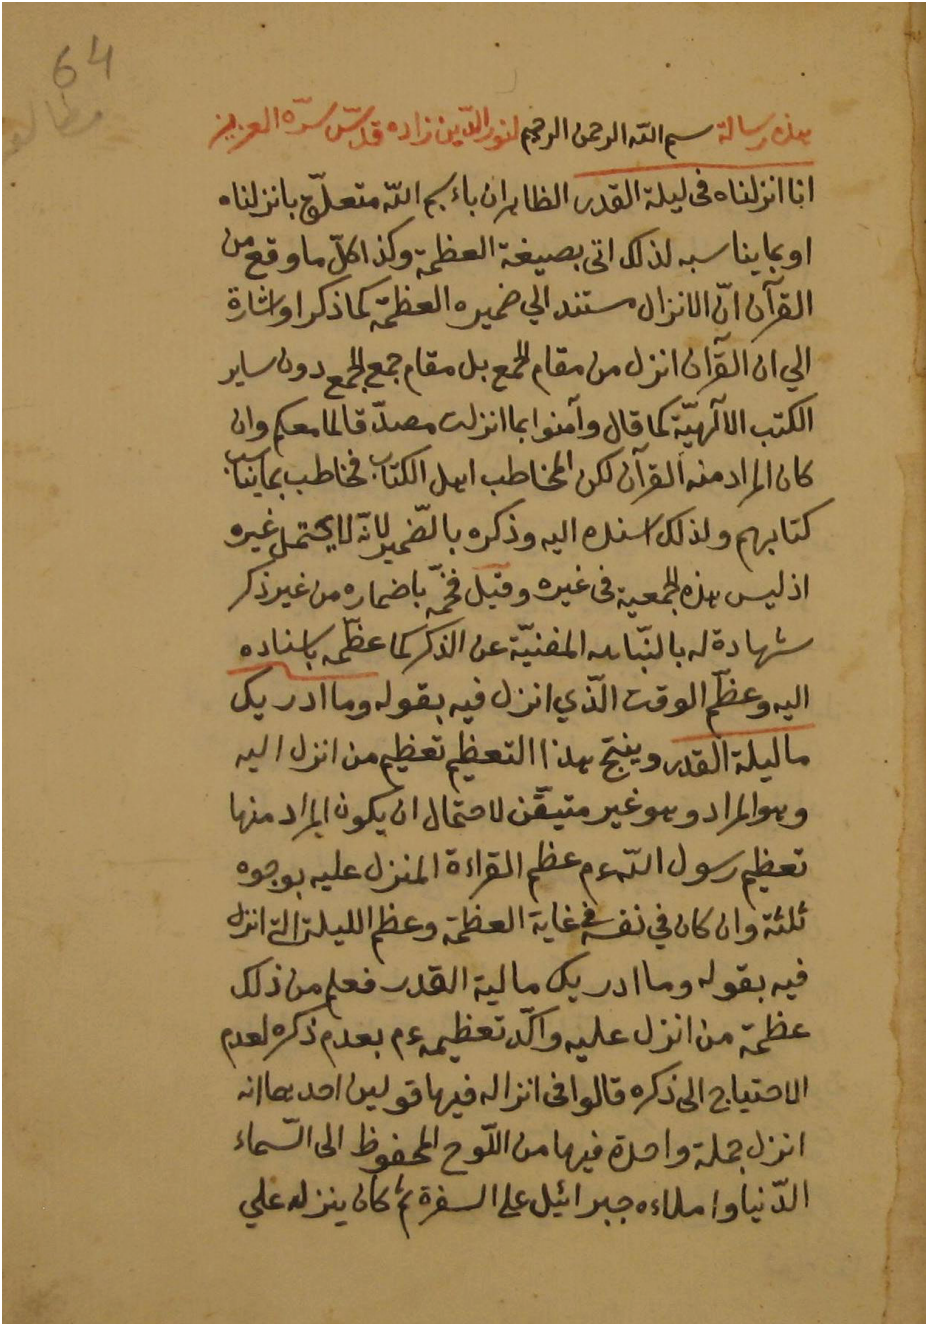 64
مطالعه
هذه رسالة بسم الله الرحمن الرحيم لنور الدين زاده قدّس سرّه العزيز
انا انزلناه فى ليلة القدر الظاهر ان باء بسم الله متعلّق بانزلناه
او بما يناسبه لذلك اتى بصيغة العظمة وكذا كلّ ما وقع من
القرآن انّ الانزال مستند الي ضميره العظمة كما ذكر اواشارة
الي ان القرآن انزل من مقام الجمع بل مقام جمع الجمع دون ساير
الكتب الآلهيّة كما قال وآمنوا بما انزلت مصدّقا لما معكم وان
كان المراد منه القرآن لكن المخاطب اهل الكتاب فخاطب بما يناسب
كتابهم ولذلك اسنده اليه وذكره بالضّمير لانّه لا يحتمل غيره
اذ ليس هذه الجمعية فى غيره وقيل فخّمه باضماره من غير ذكر
شهادة له بالنّباهه المغنيّة عن الذكر كما عظّمه باسناده
اليه وعظّم الوقت الّذي انزل فيه بقوله وما ادريك
ما ليلة القدر وينتج هذا التعظيم تعظيم من انزل اليه
وهو المراد وهو غير متيقّن لاحتمال ان يكون المراد منها
تعظيم رسول اللّه عم عظم القراءة المنزل عليه بوجوه
ثلثة وان كان في نفسه فى غاية العظمة وعظم الليلة التى انزل
فيه بقوله وما ادريك ما لية القدر فعلم من ذلك
عظمة من انزل عليه واكّد تعظيمه عم بعدم ذكره لعدم
الاحتياج الى ذكره قالوا فى انزاله فيها قولين احدهما انه
انزل جملة واحدة فيها من اللّوح المحفوظ الى السّماء
الدّنيا واملاءه جبرائيل على السفرة ثم كان ينزله علي